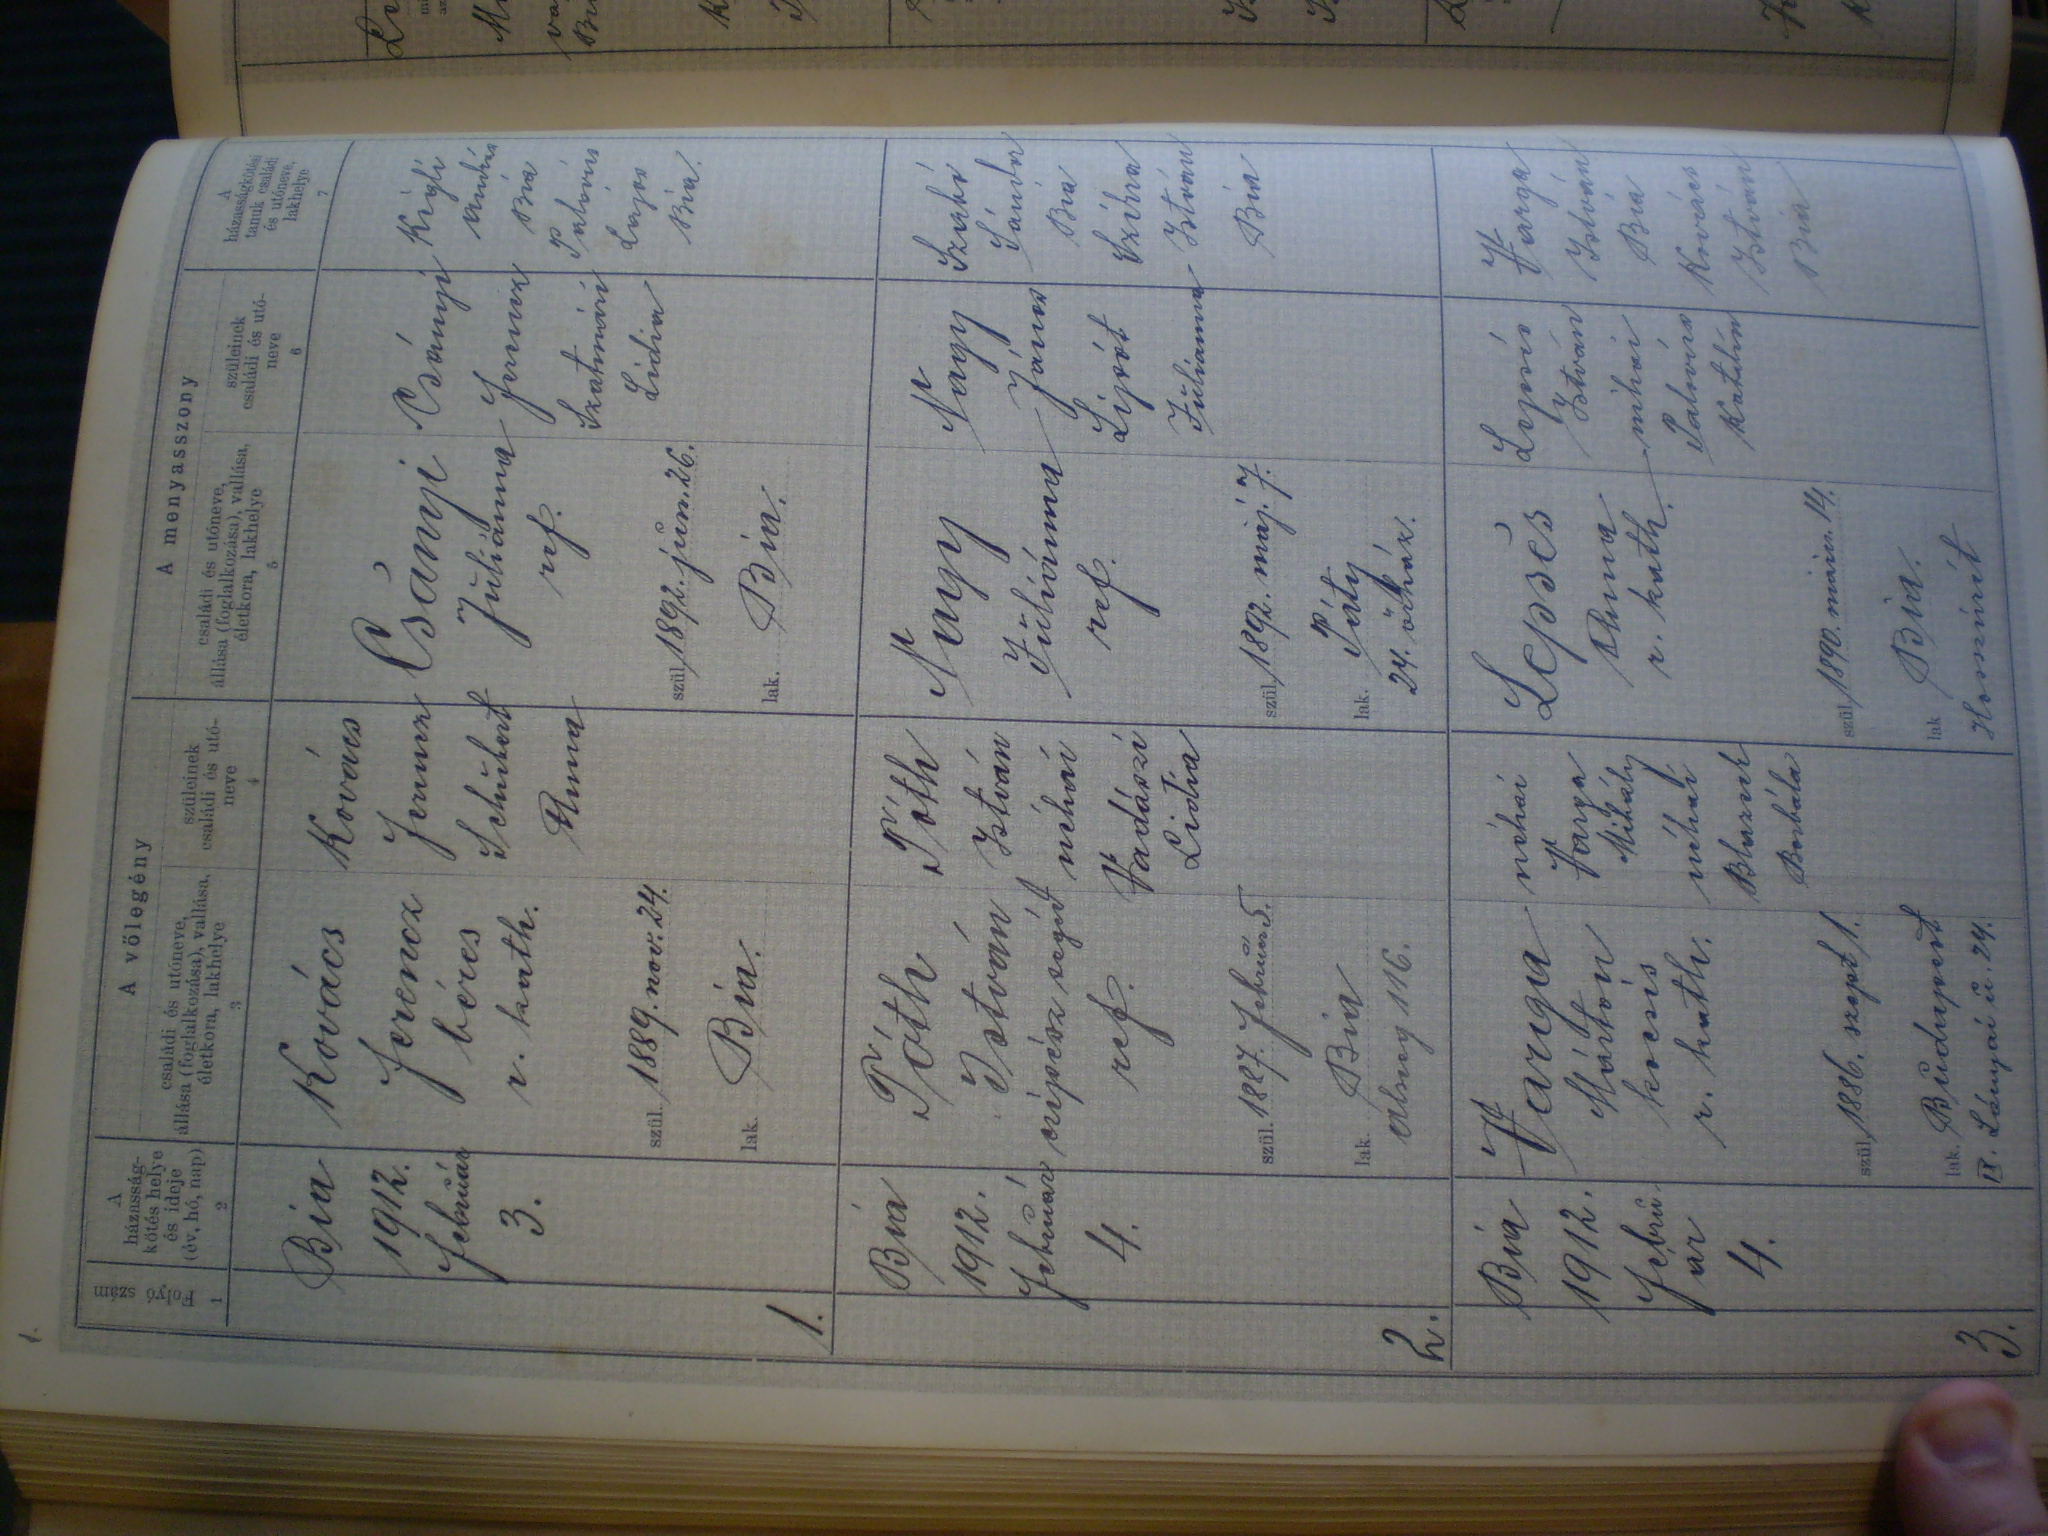 1.
A vőlegény
A menyasszony
Folyó szám
A
házasság-
kötés helye
és ideje
(év, hó, nap)
családi és utóneve,
állása (foglalkozása), vallása,
életkora, lakhelye
szüleinek
családi és utó-
neve
családi és utóneve,
állása (foglalkozása), vallása,
életkora, lakhelye
szüleinek
családi és utó-
neve
A
házasságkötési
tanuk családi
és utóneve,
lakhelye
1
2
3
4
5
6
7
1.
Bia
1912.
február
3.
Kovács
Ferencz
béres
r. kath.
szül. 1889. nov. 24.
lak. Bia.
Kovács
Ferencz
Schubert
Anna
Csányi
Juliánna
ref.
szül. 1892. jun. 26.
lak. Bia.
Csányi
Ferencz
Szatmári
Lidia
András
Bia
Lajos
Bia.
2.
Bia
1912.
február
4.
Tóth
István
czipész segéd
ref.
szül. 1887. február 5.
lak. Bia
Alszeg 116.
Tóth
István
néhai
Vadászi
Lidia
Nagy
Juliánna
ref.
szül. 1892. máj. 7.
lak. Páty
24. ő. ház.
Nagy
János
Lipót
Juliánna
Szabó
Sándor
Bia
István
Bia
3.
Bia
1912.
Febru-
ár
4.
Varga
Márton
kocsis
r. kath.
szül. 1886. szept. 1.
lak. Budapest
IX. Lónyai u. 24.
néhai
Varga
Mihály
néhai
Borbála
Lepsés
Anna
r. kath.
szül. 1890. márc. 14.
lak Bia.
István
néhai
Katalin
Varga
István
Bia
Kovács
István
Bia